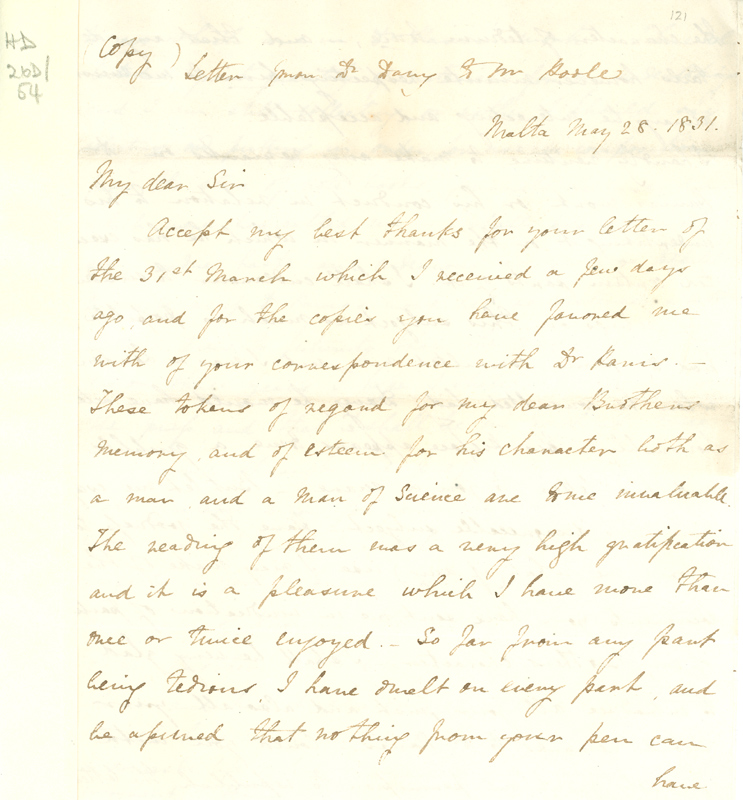 121
HD
26D/
54
(Copy)
Letter from Dr Davy to Mr Poole
Malta May 28. 1831.
My dear Sir
Accept my best thanks for your letter of
the 31st March which I received a few days
ago, and for the copies you have favored me
with of your correspondence with Dr Paris. —
These tokens of regard for my dear Brothers
Memory, and of esteem for his character both as
a man and a Man of Science are to me invaluable.
The reading of them was a very high gratification
and it is a pleasure which I have more than
once or twice enjoyed. — So far from any part
being tedious, I have dwelt on every part, and
be assured that nothing from your pen can
have